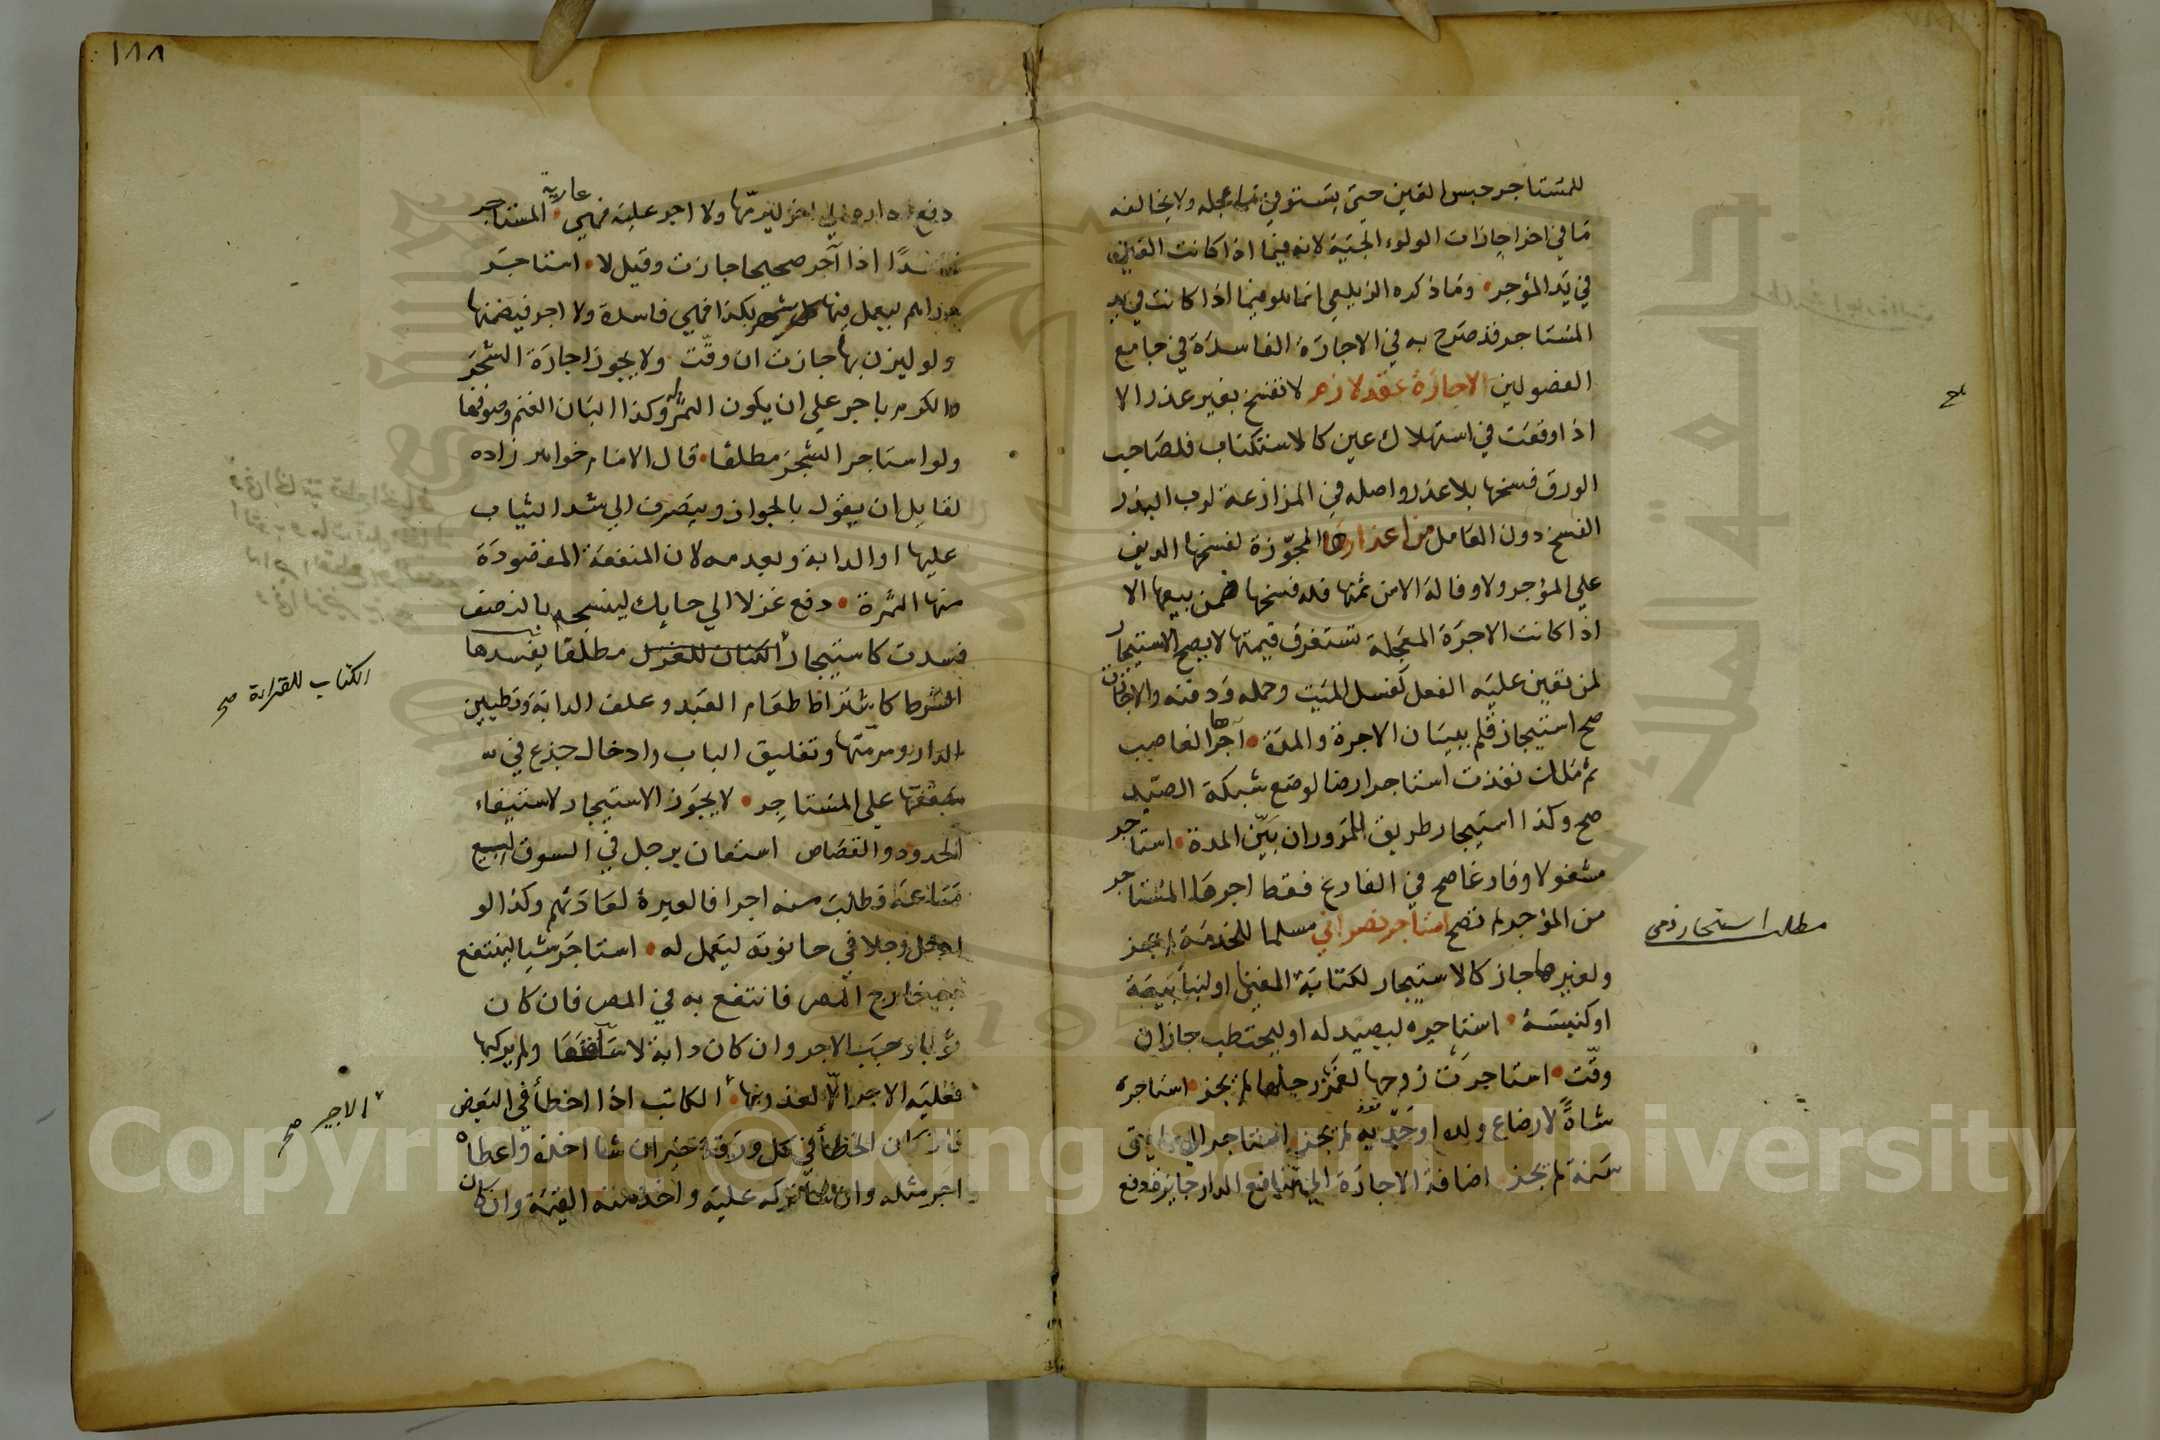 للمستاجر حبس العين حتى يستوفي ما عجله ولا يخالفه
ما في اخر اجازات الولوالجية لانه فيما اذا كانت العين
في يد المؤجر وما ذكره الزيلعي انما هو فيما اذا كانت في يد
المستاجر قد صرح به في الاجارة الفاسدة في جامع
الفصولين الاجارة عقد لازم لا تفسخ بغير عذر الا
اذا وقعت في استهلاك عين كالاستكتاب فلصاحب
الورق فسخها بلا عذر واصله في المزارعة لرب البذر
الفسخ دون العامل من اعذارها المجوزة لفسخها الدين
علي المؤجر ولا وفا له الا من ثمنها فله فسخها ببيعها الا
اذا كانت الاجرة المعجلة تستغرق قيمتها لا يصح الاستيجار
لمن تعين عليه الفعل كغسل الميت وحمله ودفنه والا جازت
صح استيجار قلم ببيان الاجرة والمدة آجرها الغاصب
ثم ملك نفذت استاجر ارضا لوضع شبكة الصيد
صح وكذا استيجار طريق للمرور ان بين المدة استاجر
مشغولا وفارغا صح في الفارغ فقط اجرها المستاجر
من المؤجر لم تصح استاجر نصراني مسلما للخدمة لم يجز
ولغيرها جاز كالاستيجار لكتابة الغنا او لبنا بيعة
او كنيسة استاجره ليصيد له او ليحتطب جاز ان
وقت استاجرت زوجها لغمز رجلها لم يجز استاجره
شاة لارضاع ولده او جديه لم يجز استاجر الي
سنة لم يجز اضافة الاجارة الي منافع الدار جايز فدفع
مطلب استيجار ذمي
١٨٨
دفع داره الي اخر ليرمها ولا اجر عليه فهي عارية المستاجر
فاسدا اذا آجر صحيحا جازت وقيل لا استاجر
دراهم ليعمل فيها كل شهر بكذا فهي فاسدة ولا اجر فيضمنها
ولو ليزن بها جازت ان وقت ولا يجوز اجارة الشجر
والكرم باجر علي ان يكون الثمر له وكذا البان الغنم وصوفها
ولو استاجر الشجر مطلقا قال الامام خواهر زاده
لقايل ان يقول بالجواز ويتصرف الي شد الثياب
عليها او الدابة وبعدمه لان المنفعة المقصودة
منها الثمرة دفع غزلا الي حايك لينسجه بالنصف
فسدت كاستيجار الكتان للغزل مطلقا يفسدها
الشرط كاشتراط طعام العبد وعلف الدابة وتطيين
الدار ومرمتها وتغليق الباب وادخال جذع في
سقفها علي المستاجر لا يجوز الاستيجار لاستيفاء
الحدود والقصاص استعان برجل في السوق ليبيع
متاعه فطلب منه اجرا فالعبرة لعادتهم وكذا لو
ادخل رجلا في حانوته ليعمل له استاجر شيا لينتفع
به خارج المصر فانتفع به في المصر فان كان
ثوبا وجب الاجر وان كان دابة لا ساقها ولم يركبها
فعليه الاجر الا لعذر بها الكاتب اذا اخطأ في البعض
فان كان الخطأ في كل ورقة خير ان شا اخذه واعطاه
اجر مثله وان شا تركه عليه واخذ منه القيمة وان كان
الكتاب للقراءة صح
الاجير صح